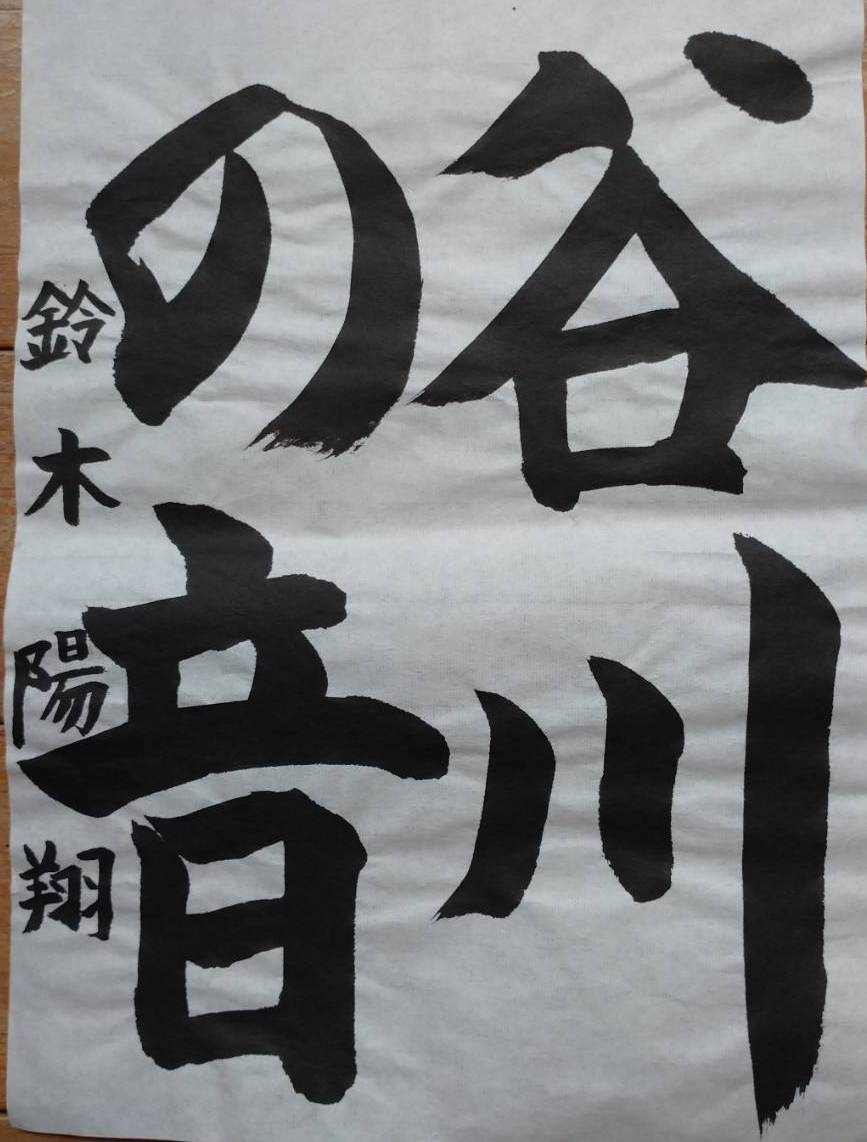 谷川
の音
鈴木陽翔